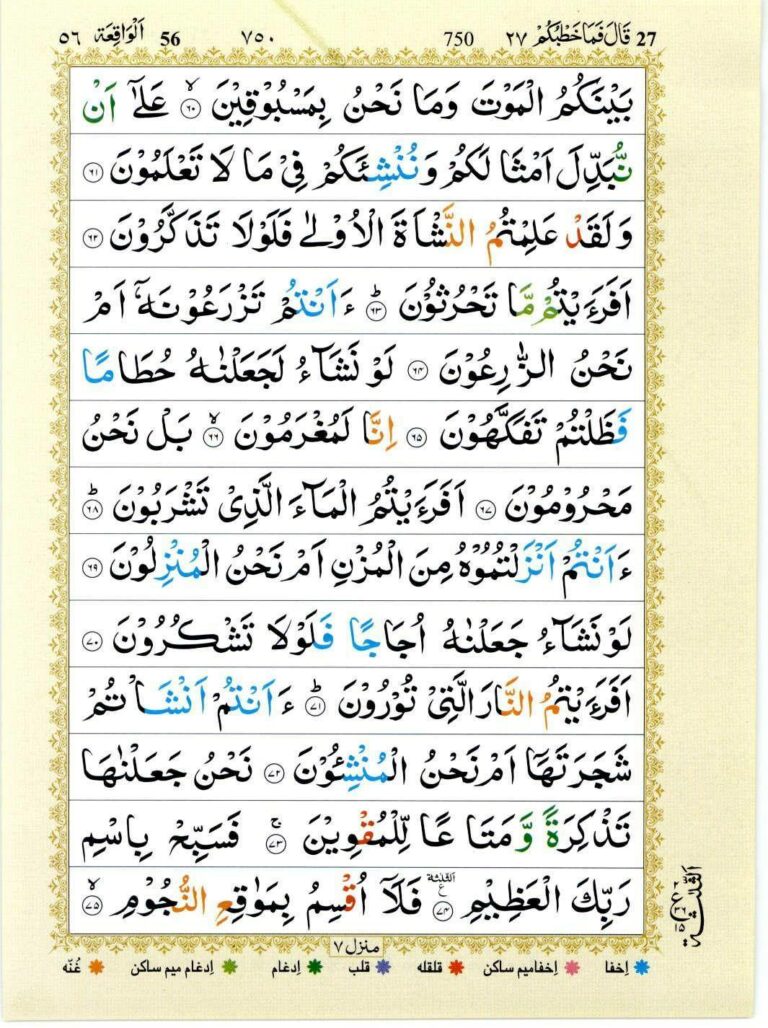 27 قَالَ فَمَا خَطْبُكُمْ ٢٧ 750 ٧٥٠ 56 اَلْوَاقِعَة ٥٦
بَيْنَكُمُ الْمَوْتَ وَمَا نَحْنُ بِمَسْبُوْقِيْنَ ۙ‏﴿۶۰﴾ عَلٰٓى اَنْ
نُّبَدِّلَ اَمْثَالَكُمْ وَنُنْشِئَكُمْ فِىْ مَا لَا تَعْلَمُوْنَ ﴿۶۱﴾
وَلَقَدْ عَلِمْتُمُ النَّشْاَةَ الْاُوْلٰى فَلَوْلَا تَذَكَّرُوْنَ ﴿۶۲﴾
اَفَرَءَيْتُمْ مَّا تَحْرُثُوْنَ ؕ‏﴿۶۳﴾ ءَاَنْتُمْ تَزْرَعُوْنَهٗۤ اَمْ
نَحْنُ الزّٰرِعُوْنَ ﴿۶۴﴾ لَوْ نَشَآءُ لَجَعَلْنٰهُ حُطَامًا
فَظَلْتُمْ تَفَكَّهُوْنَ ﴿۶۵﴾ اِنَّا لَمُغْرَمُوْنَ ۙ‏﴿۶۶﴾ بَلْ نَحْنُ
مَحْرُوْمُوْنَ ﴿۶۷﴾ اَفَرَءَيْتُمُ الْمَآءَ الَّذِىْ تَشْرَبُوْنَ ؕ‏﴿۶۸﴾
ءَاَنْتُمْ اَنْزَلْتُمُوْهُ مِنَ الْمُزْنِ اَمْ نَحْنُ الْمُنْزِلُوْنَ ﴿۶۹﴾
لَوْ نَشَآءُ جَعَلْنٰهُ اُجَاجًا فَلَوْلَا تَشْكُرُوْنَ ﴿۷۰﴾
اَفَرَءَيْتُمُ النَّارَ الَّتِىْ تُوْرُوْنَ ؕ‏﴿۷۱﴾ ءَاَنْتُمْ اَنْشَاْتُمْ
شَجَرَتَهَاۤ اَمْ نَحْنُ الْمُنْشِـُٔوْنَ ﴿۷۲﴾ نَحْنُ جَعَلْنٰهَا
تَذْكِرَةً وَّمَتَاعًا لِّلْمُقْوِيْنَ ۚ‏﴿۷۳﴾ فَسَبِّحْ بِاسْمِ
رَبِّكَ الْعَظِيْمِ ﴿۷۴﴾ الثلثة ع فَلَاۤ اُقْسِمُ بِمَوٰقِعِ النُّجُوْمِ ۙ‏﴿۷۵﴾
اَلثَّلٰثَة
ع
منزل ٧
اِخفا اِخفامیم ساکن قلقله قلب اِدغام اِدغام میم ساکن غُنّه